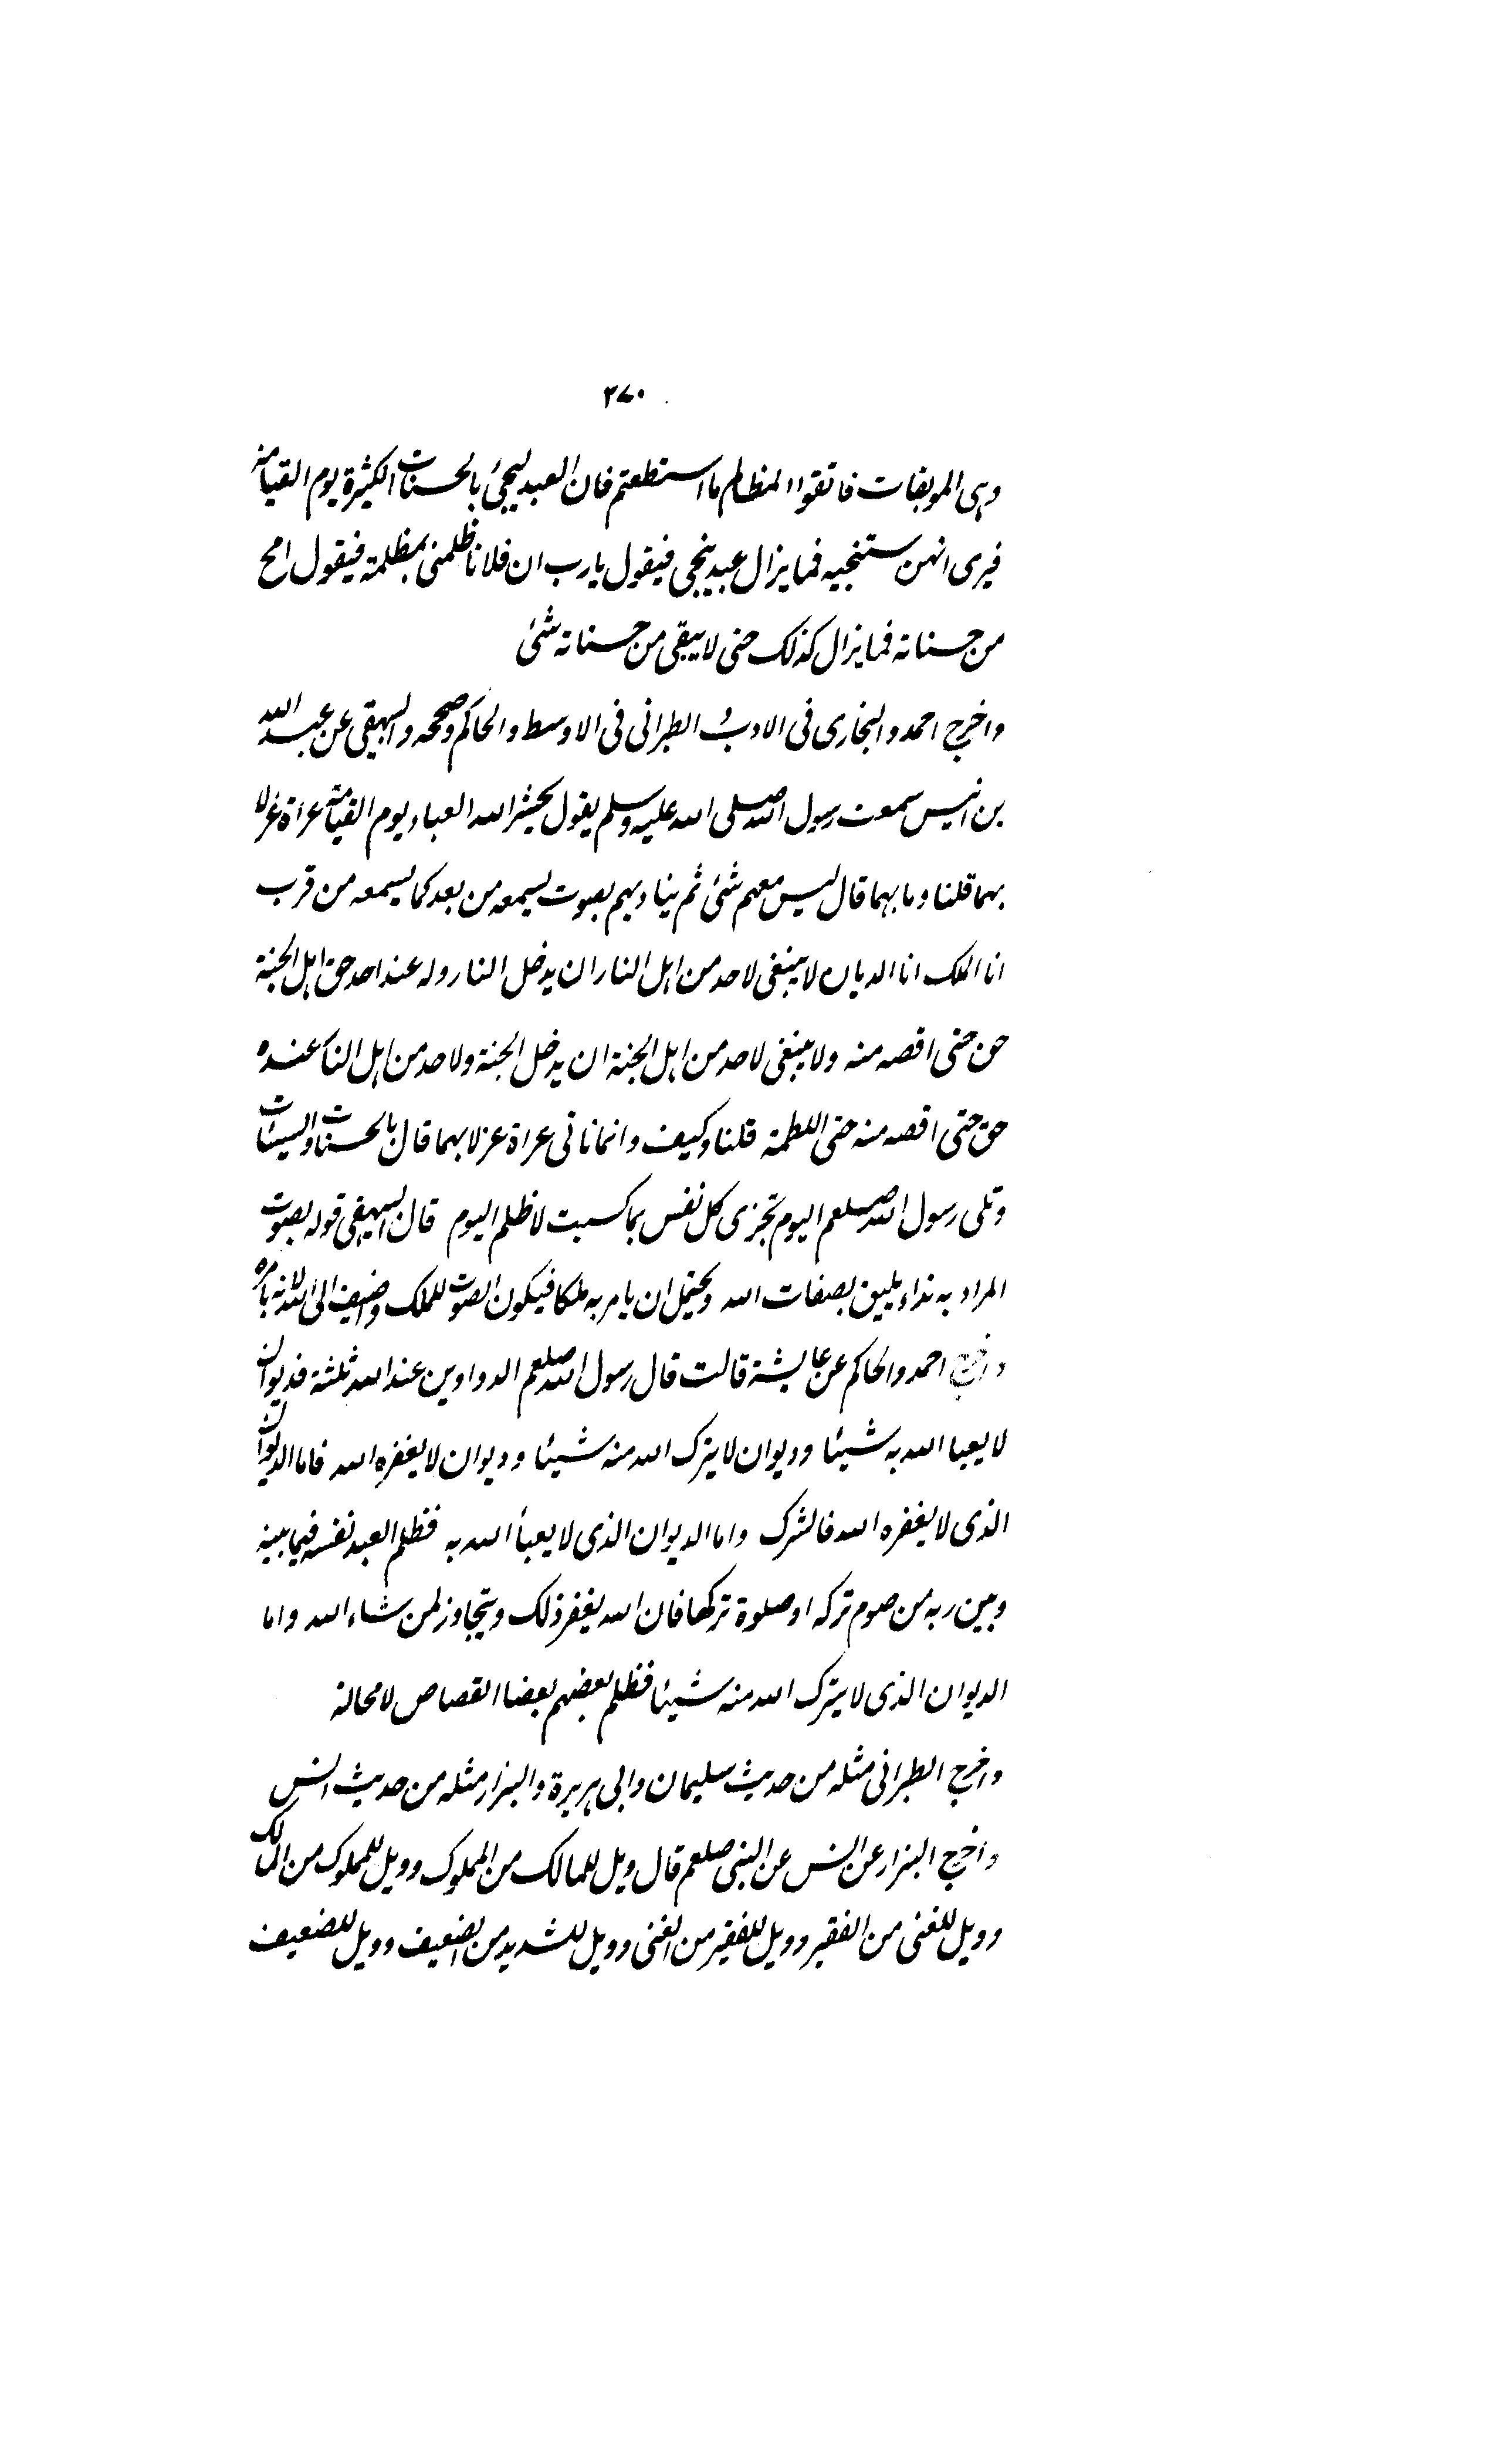 ٢٧٠
وهى الموبقات فاتقوا المظالم ما استطعتم فان العبد ليجئ بالحسنات الكثيرة يوم القيامة
فيرى انهن ستنجيه فما يزال عبد ينجى فيقول يا رب ان فلانا ظلمنى بمظلمة فيقول امح
من حسناته فما يزال كذلك حتى لا يبقى من حسناته شئ
واخرج احمد والبخارى فى الادب والطبرانى فى الاوسط والحاكم وصححه والبيهقى عن عبد الله
بن انيس سمعت رسول الله صلى الله عليه وسلم يقول يحشر الله العباد يوم القيامة عراة غرلا
بهما قلنا وما بهما قال ليس معهم شئ ثم يناديهم بصوت يسمعه من بعد كما يسمعه من قرب
انا الملك انا الديان لا ينبغى لاحد من اهل النار ان يدخل النار وله عند احد حق اهل الجنة
حق حتى اقصه منه ولا ينبغى لاحد من اهل الجنة ان يدخل الجنة ولاحد من اهل النار عنده
حق حتى اقصه منه حتى اللطمة قلنا وكيف وانما ناتى عراة عزلا بهما قال بالحسنات والسيئات
وتلى رسول الله صلعم اليوم تجزى كل نفس بما كسبت لا ظلم اليوم قال البيهقى قوله بصوت
المراد به نداء يليق بصفات الله ويحتمل ان يامر به ملكا فيكون الصوت للملك واضيف الى الله لانه بامره
واخرج احمد والحاكم عن عايشة قالت قال رسول الله صلعم الدواوين عند الله ثلثة فديوان
لا يعبا الله به شيئا وديوان لا يترك الله منه شيئا وديوان لا يغفره الله فاما الديوان
الذى لا يغفره الله فالشرك واما الديوان الذى لا يعبأ الله به فظلم العبد نفسه فيما بينه
وبين ربه من صوم تركه او صلوة تركها فان الله يغفر ذلك ويتجاوز لمن شاء الله واما
الديوان الذى لا يترك الله منه شيئا فظلم بعضهم بعضا القصاص لا محالة
واخرج الطبرانى مثله من حديث سليمان وابى هريرة والبزار مثله من حديث انس
واخرج البزار عن انس عن النبى صلعم قال ويل للمالك من المملوك وويل للمملوك من المالك
وويل للغنى من الفقير وويل للفقير من الغنى وويل للشديد من الضعيف وويل للضعيف